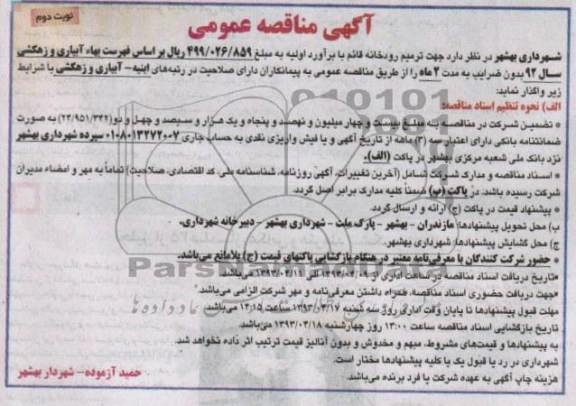 نوبت دوم
آگهی مناقصه عمومی
شهرداری بهشهر در نظر دارد جهت ترمیم رودخانه قائم با برآورد اولیه به مبلغ ۴۹۹/۰۲۶/۸۵۹ ریال بر اساس فهرست بهاء آبیاری و زهکشی
سال ۹۲ بدون ضرایب به مدت ۲ ماه را از طریق مناقصه عمومی به پیمانکاران دارای صلاحیت در رتبه‌های ابنیه- آبیاری و زهکشی با شرایط
زیر واگذار نماید:
الف) نحوه تنظیم اسناد مناقصه:
* تضمین شرکت در مناقصه به مبلغ بیست و چهار میلیون و نهصد و پنجاه و یک هزار و سیصد و چهل و دو به صورت
ضمانتنامه بانکی دارای اعتبار سه (۳) ماهه از تاریخ آگهی و یا فیش واریزی نقدی به حساب جاری ۰۱۰۸۰۱۳۲۷۲۰۰۷ سپرده شهرداری بهشهر
نزد بانک ملی شعبه مرکزی بهشهر در پاکت (الف).
* اسناد مناقصه و مدارک شرکت شامل (آخرین تغییرات، آگهی روزنامه، شناسنامه ملی، کد اقتصادی، صلاحیت) تماماً به مهر و امضاء مدیران
شرکت رسیده باشد. در پاکت (ب) ضمناً کلیه مدارک برابر اصل گردد.
* پیشنهاد قیمت در پاکت (ج) ارائه و ارسال گردد.
ب) محل تحویل پیشنهادها: مازندران - بهشهر - پارک ملت - شهرداری بهشهر - دبیرخانه شهرداری.
ج) محل گشایش پیشنهادها شهرداری بهشهر.
* حضور شرکت کنندگان با معرفی‌نامه معتبر در هنگام بازگشایی پاکتهای قیمت (ج) بلامانع می‌باشد.
*تاریخ دریافت اسناد مناقصه در ساعات اداری از الی ۱۳۹۳/۰۳/۱۱ می‌باشد.
*جهت دریافت حضوری اسناد مناقصه، همراه داشتن معرفی‌نامه و مهر شرکت الزامی می‌باشد.
مهلت قبول پیشنهادها تا پایان وقت اداری روز سه شنبه ۱۳۹۳/۰۳/۱۷ ساعت ۱۴:۱۵ می‌باشد.
تاریخ بازگشایی اسناد مناقصه ساعت ۱۳:۰۰ روز چهارشنبه ۱۳۹۳/۰۳/۱۸ می‌باشد.
به پیشنهادها و قیمت‌های مشروط، مبهم و مخدوش و بدون آنالیز قیمت ترتیب اثر داده نخواهد شد.
شهرداری در رد یا قبول یک یا کلیه پیشنهادها مختار است.
هزینه چاپ آگهی به عهده شرکت یا فرد برنده می‌باشد.
حمید آزموده- شهردار بهشهر